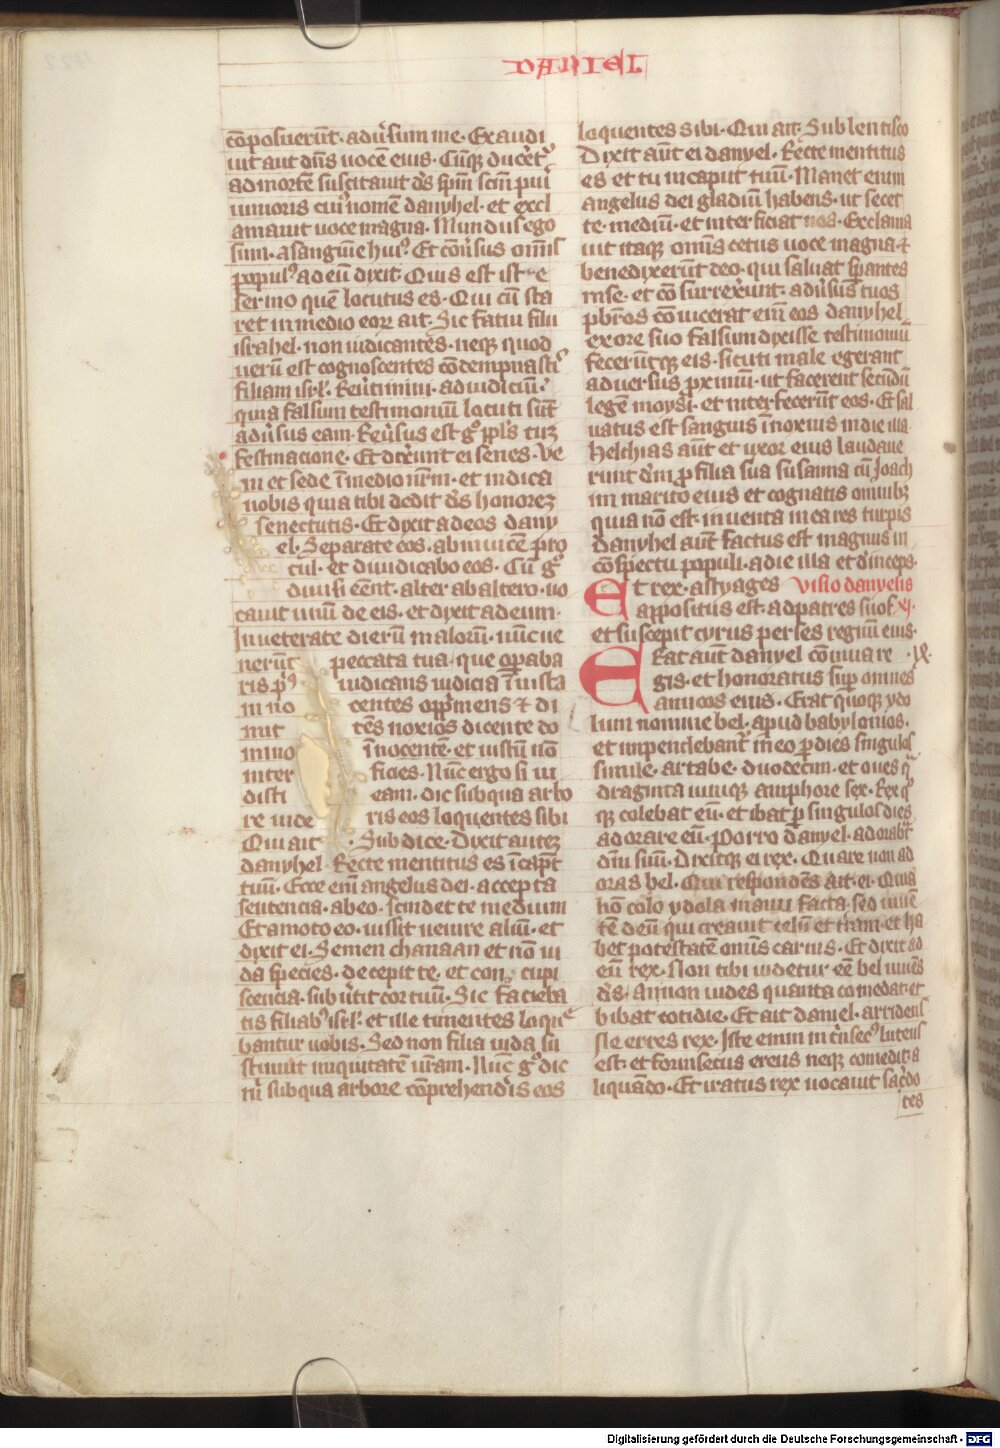 DANIEL
cōposuerūt· adūsum me· Exaudi
uit aut dn̄s uocē eius· Cūq; ducēt̄
ad mortē suscitauit ds̄ sp̄m scm̄ pui
iunioris cui9 nomē danyhel· et excl
amauit uoce magna· Mundus ego
sum· a sanguīe hui9· Et cōuersus omīs
popul9 ad eū dixit· Quis est iste
sermo quē locutus es· Qui cū sta
ret in medio eor̄ ait· Sic fatui filii
israhel· non iudicantes· neq; quod
uerū est cognoscentes cōdempnastis
filiam isrl̄· Reūtimini· ad iudiciū·
quia falsum testimoniū locuti sūt
adūsus eam· Reūsus est gͦ ppl̄s cuꝫ
festinacione· Et dixerūt ei senes· Ve
ni et sede ī medio nr̄m· et indica
nobis quia tibi dedit ds̄ honoreꝫ
senectutis· Et dixit ad eos dany
el· Separate eos· ab inuicē pro
cul· et diiudicabo eos· Cū gͦ
diuisi eēnt· alter ab altero· uo
cauit unū de eis· et dixit ad eum·
Inueterate dierū malorū· nūc ue
nerūt peccata tua· que opaba
ris p9 iudicans iudicia īiusta
in no centes opp̄mens ⁊ di
mit tēs noxios dicente do
mino īnocentē· et iustū nō
inter ficies· Nūc ergo si ui
disti eam· dic sub qua arbo
re uide ris eos loquentes sibi
Qui ait· Sub dice· Dixit auteꝫ
danyhel· Recte mentitus es ī caput
tuū· Ecce eni angelus dei· accepta
sentencia· ab eo· scindet te medium
Et amoto eo· iussit uenire aliū· et
dixit ei· Semen chanaan et nō iu
da species· decepit te· et con cupi
scencia· sub ūtit cor tuū· Sic facieba
tis filiab9 isrl̄· et ille timentes loque
bantur uobis· Sed non filia iuda su
stinuit iniquitatē ur̄am· Nūc gͦ dic
m̄ sub qua arbore cōprehendis eos
loquentes sibi· Qui ait· Sub lentisco
Dixit aūt ei danyel· Recte mentitus
es et tu in caput tuū· Manet enim
angelus dei gladiū habens· ut secet
te· mediū· et interficiat nos· Exclama
uit itaq; omīs cetus uoce magna ⁊
benedixerūt deo· qui saluat sp̄antes
in se· et cō surrexerunt· adūsus duos
pb̄ros cōuicerat enī eos danyhel
ex ore suo falsum dixisse testimoniū
fecerūtq; eis· sicuti male egerant
aduersus pximū· ut facerent secūdū
legē moysi· et interfecerūt eos· Et sal
uatus est sanguis īnoxius in die illa·
Helchias aūt et uxor eius laudaue
runt dm̄ p filia sua susanna cū Joach
im marito eius et cognatis omnibꝫ
quia nō est· inuenta in ea res turpis
Danyhel aūt factus est magnus in
cōspectu populi· a die illa et deinceps·
Et rex· astyages visio danyelis
appositus est· ad patres suos xj·
et suscepit cyrus perses regnū eius·
Erat aūt danyel cōuiua re
gis· et honoratus sup omnes
amicos eius· Erat quoq; ydo
lum nomine bel· apud babylonios·
et inpendebant̄ in eo p dies singulos
simile· artabe· duodecim· et oues q̄
draginta uiniq; amphore sex· Rex q9
q; colebat eū· et ibat p singulos dies
adorare eū· Porro danyel· adorabt̄
dm̄ suū· Dixitq; ei rex· Quare non ad
oras bel· Qui respondēs ait· ei· Quia
nō colo ydola manu facta· sed uiuē
tē deū· qui creauit celū et t̄ram· et ha
bet potestatē omīs carnis· Et dixit ad
eū rex· Non tibi uidetur eē bel uiuēs
ds̄· An non uides quanta comedat· et
bibat cotidie· Et ait daniel· arridens
Ne erres rex· Iste enim int̄nsec9 luteus
est· et forinsecus ereus neq; comedit· a
liquādo· Et iratus rex uocauit sac̄do
tes
Digitalisierung gefördert durch die Deutsche Forschungsgemeinschaft · DFG